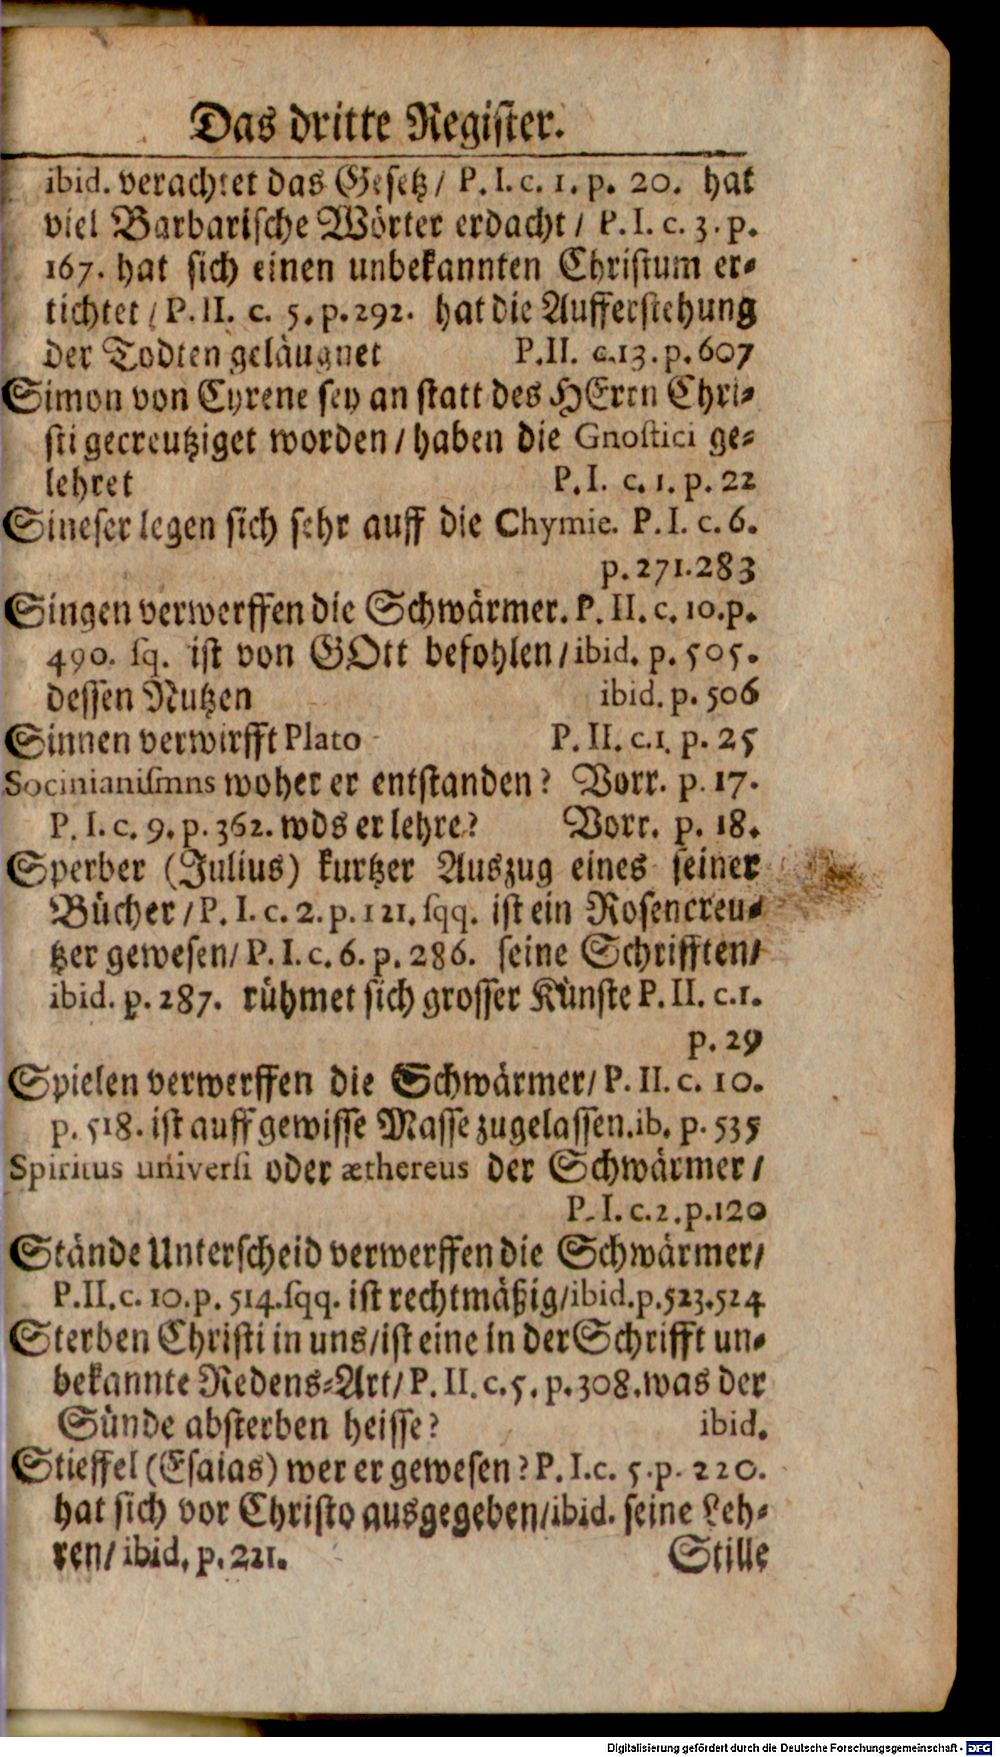 Das dritte Register.
ibid. verachtet das Gesetz/ P. I. c. 1. p. 20. hat
viel Barbarische Wörter erdacht / P. I. c. 3. p.
167. hat sich einen unbekannten Christum er-
tichtet / P. II. c. 5. p. 292. hat die Aufferstehung
der Todten geläugnet P. II. c. 13. p. 607
Simon von Cyrene sey an statt des HErrn Chri-
sti gecreutziget worden / haben die Gnostici ge-
lehret P. I. c. 1. p. 22
Sineser legen sich sehr auff die Chymie. P. I. c. 6.
p. 271. 283
Singen verwerffen die Schwärmer. P. II. c. 10. p.
490. sq. ist von GOtt befohlen / ibid. p. 505.
dessen Nutzen ibid. p. 506
Sinnen verwirfft Plato P. II. c. 1. p. 25
Socinianismns woher er entstanden? Vorr. p. 17.
P. I. c. 9. p. 362. wds er lehre? Vorr. p. 18.
Sperber (Julius) kurtzer Auszug eines seiner
Bücher / P. I. c. 2. p. 121. sqq. ist ein Rosencreu-
tzer gewesen/ P. I. c. 6. p. 286. seine Schrifften/
ibid. p. 287. rühmet sich grosser Künste P. II. c. 1.
p. 29
Spielen verwerffen die Schwärmer/ P. II. c. 10.
p. 518. ist auff gewisse Masse zugelassen. ib. p. 535
Spiritus universi oder æthereus der Schwärmer /
P. I. c. 2. p. 120
Stände Unterscheid verwerffen die Schwärmer/
P. II. c. 10. p. 514. sqq. ist rechtmäßig/ ibid. p. 523. 524
Sterben Christi in uns/ ist eine in der Schrifft un-
bekannte Redens-Art/ P. II. c. 5. p. 308. was der
Sünde absterben heisse? ibid.
Stieffel (Esaias) wer er gewesen? P. I. c. 5. p. 220.
hat sich vor Christo ausgegeben/ ibid. seine Leh-
ren/ ibid. p. 221. Stille
Digitalisierung gefördert durch die Deutsche Forschungsgemeinschaft - DFG